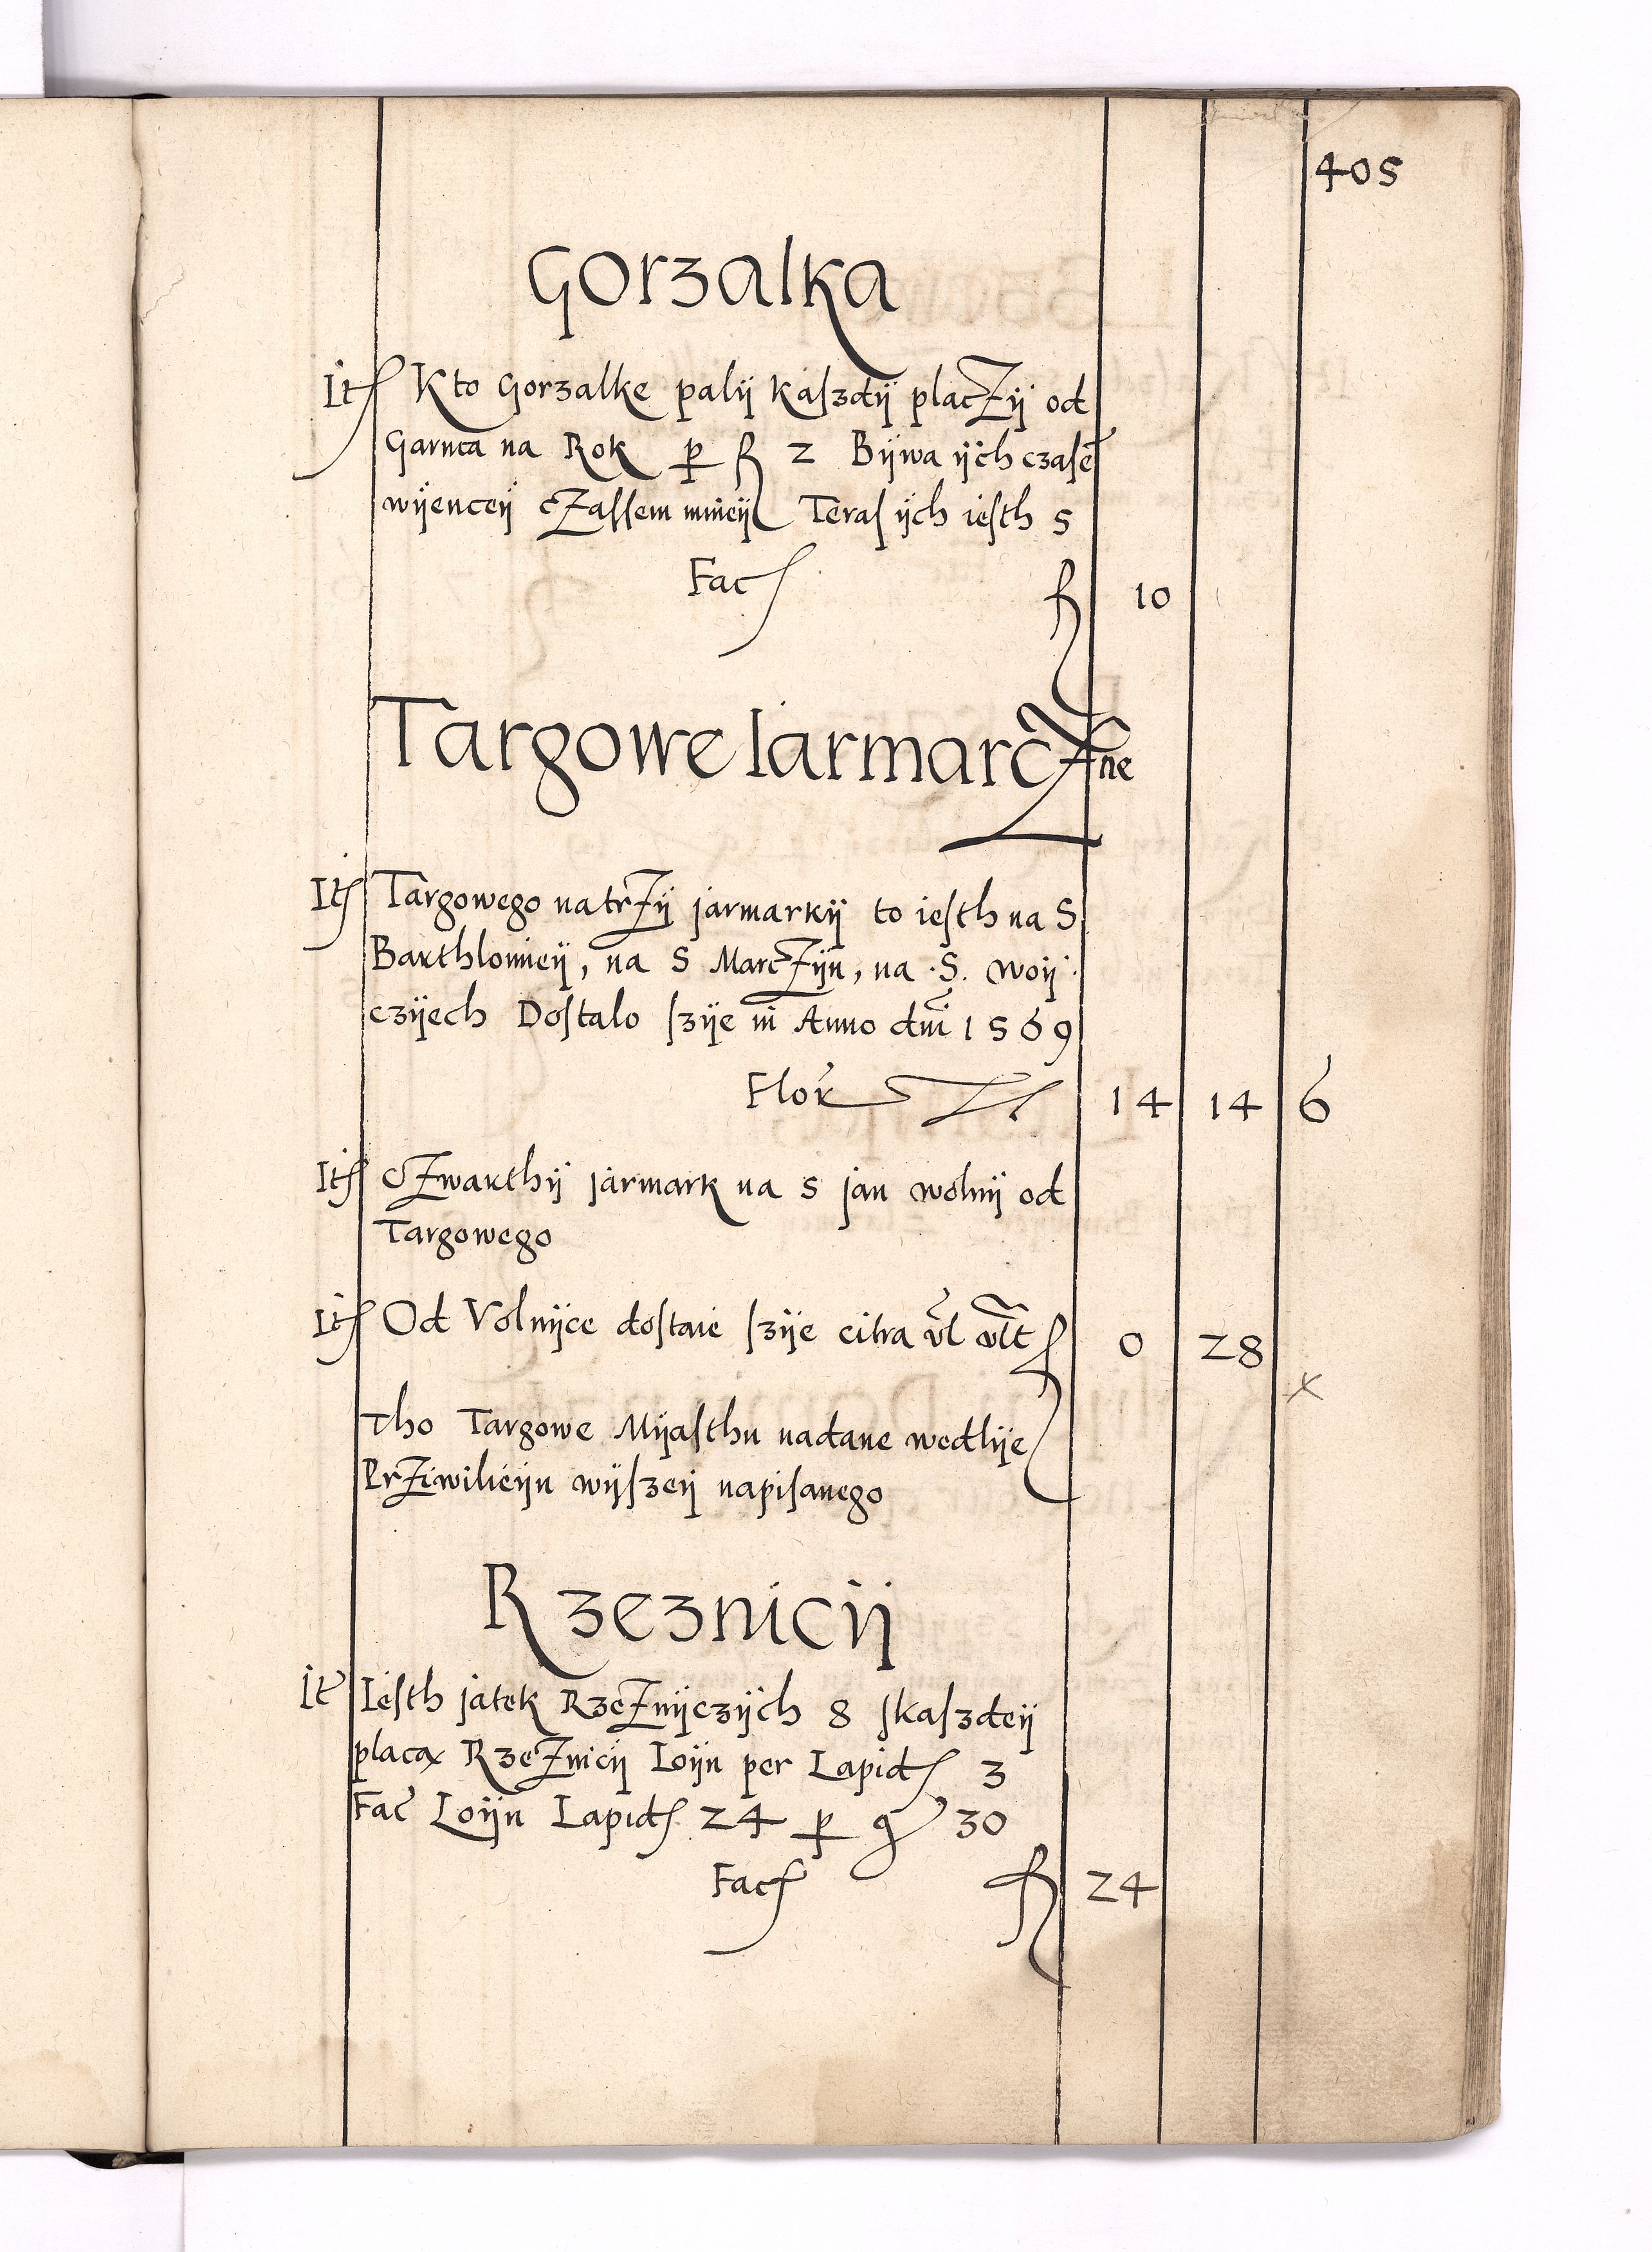 405
Gorzalka
It Kto Gorzalke palÿ kaszdÿ placzÿ od
Garnca na Rok p fl 2 Bÿwa ÿch czasē
wÿenceÿ czassem mnieÿ Teras ÿch iesth 5
Fac fl 10
Targowe Iarmarczne
It Targowego na trzÿ jarmarkÿ to iesth na S
Barthlomieÿ, na S Marczÿn, na .S. Woÿ
czÿech Dostalo szÿe in Anno dni 1569
Flor 14 14 6
It Czwarthÿ jarmark na S jan wolnÿ od
Targowego
It Od Volnÿce dostaie szÿe citra vl vlt fl 0 28
x
Tho Targowe Mÿasthu nadane wedlÿe
Prziwilieÿu wÿszeÿ napisanego
Rzeznicÿ
It Iesth jatek Rzeznÿczÿch 8 skaszdeÿ
placą Rzeznicÿ Loÿu per Lapid 3
Fac Loÿu Lapid 24 p g 30
Fac fl 24